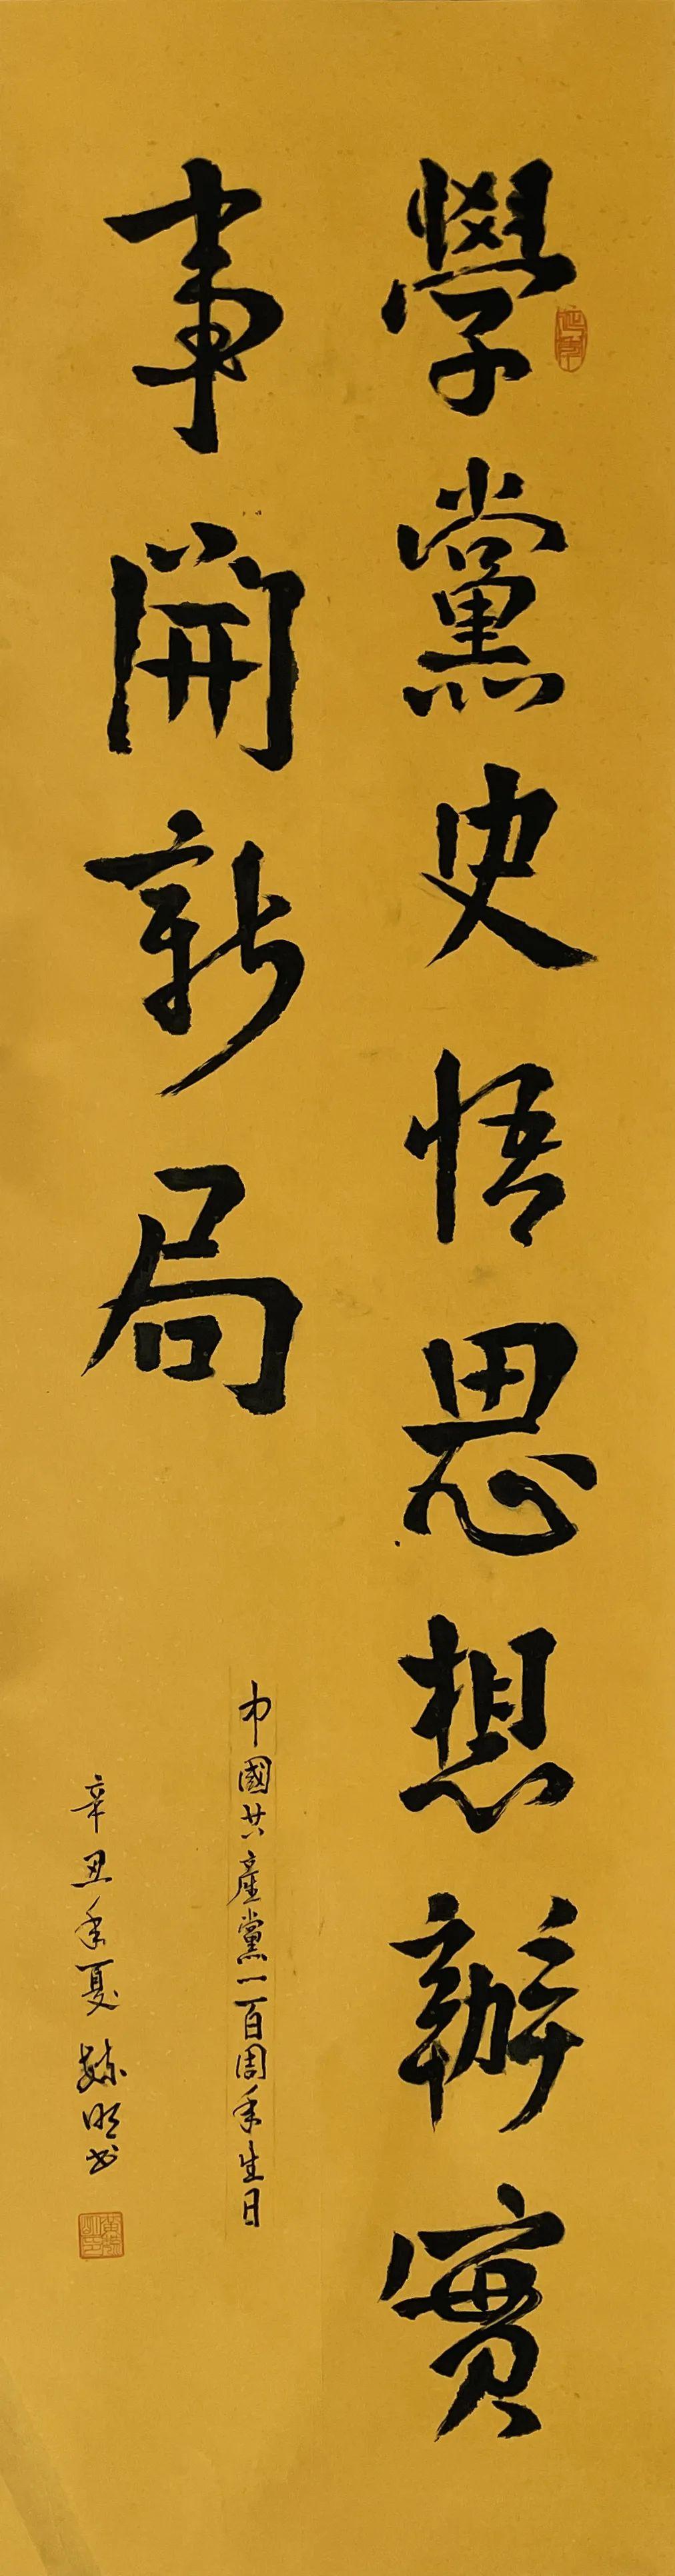 學黨史悟思想辦實
事開新局
中國共產黨一百周年生日
辛丑年夏 明书